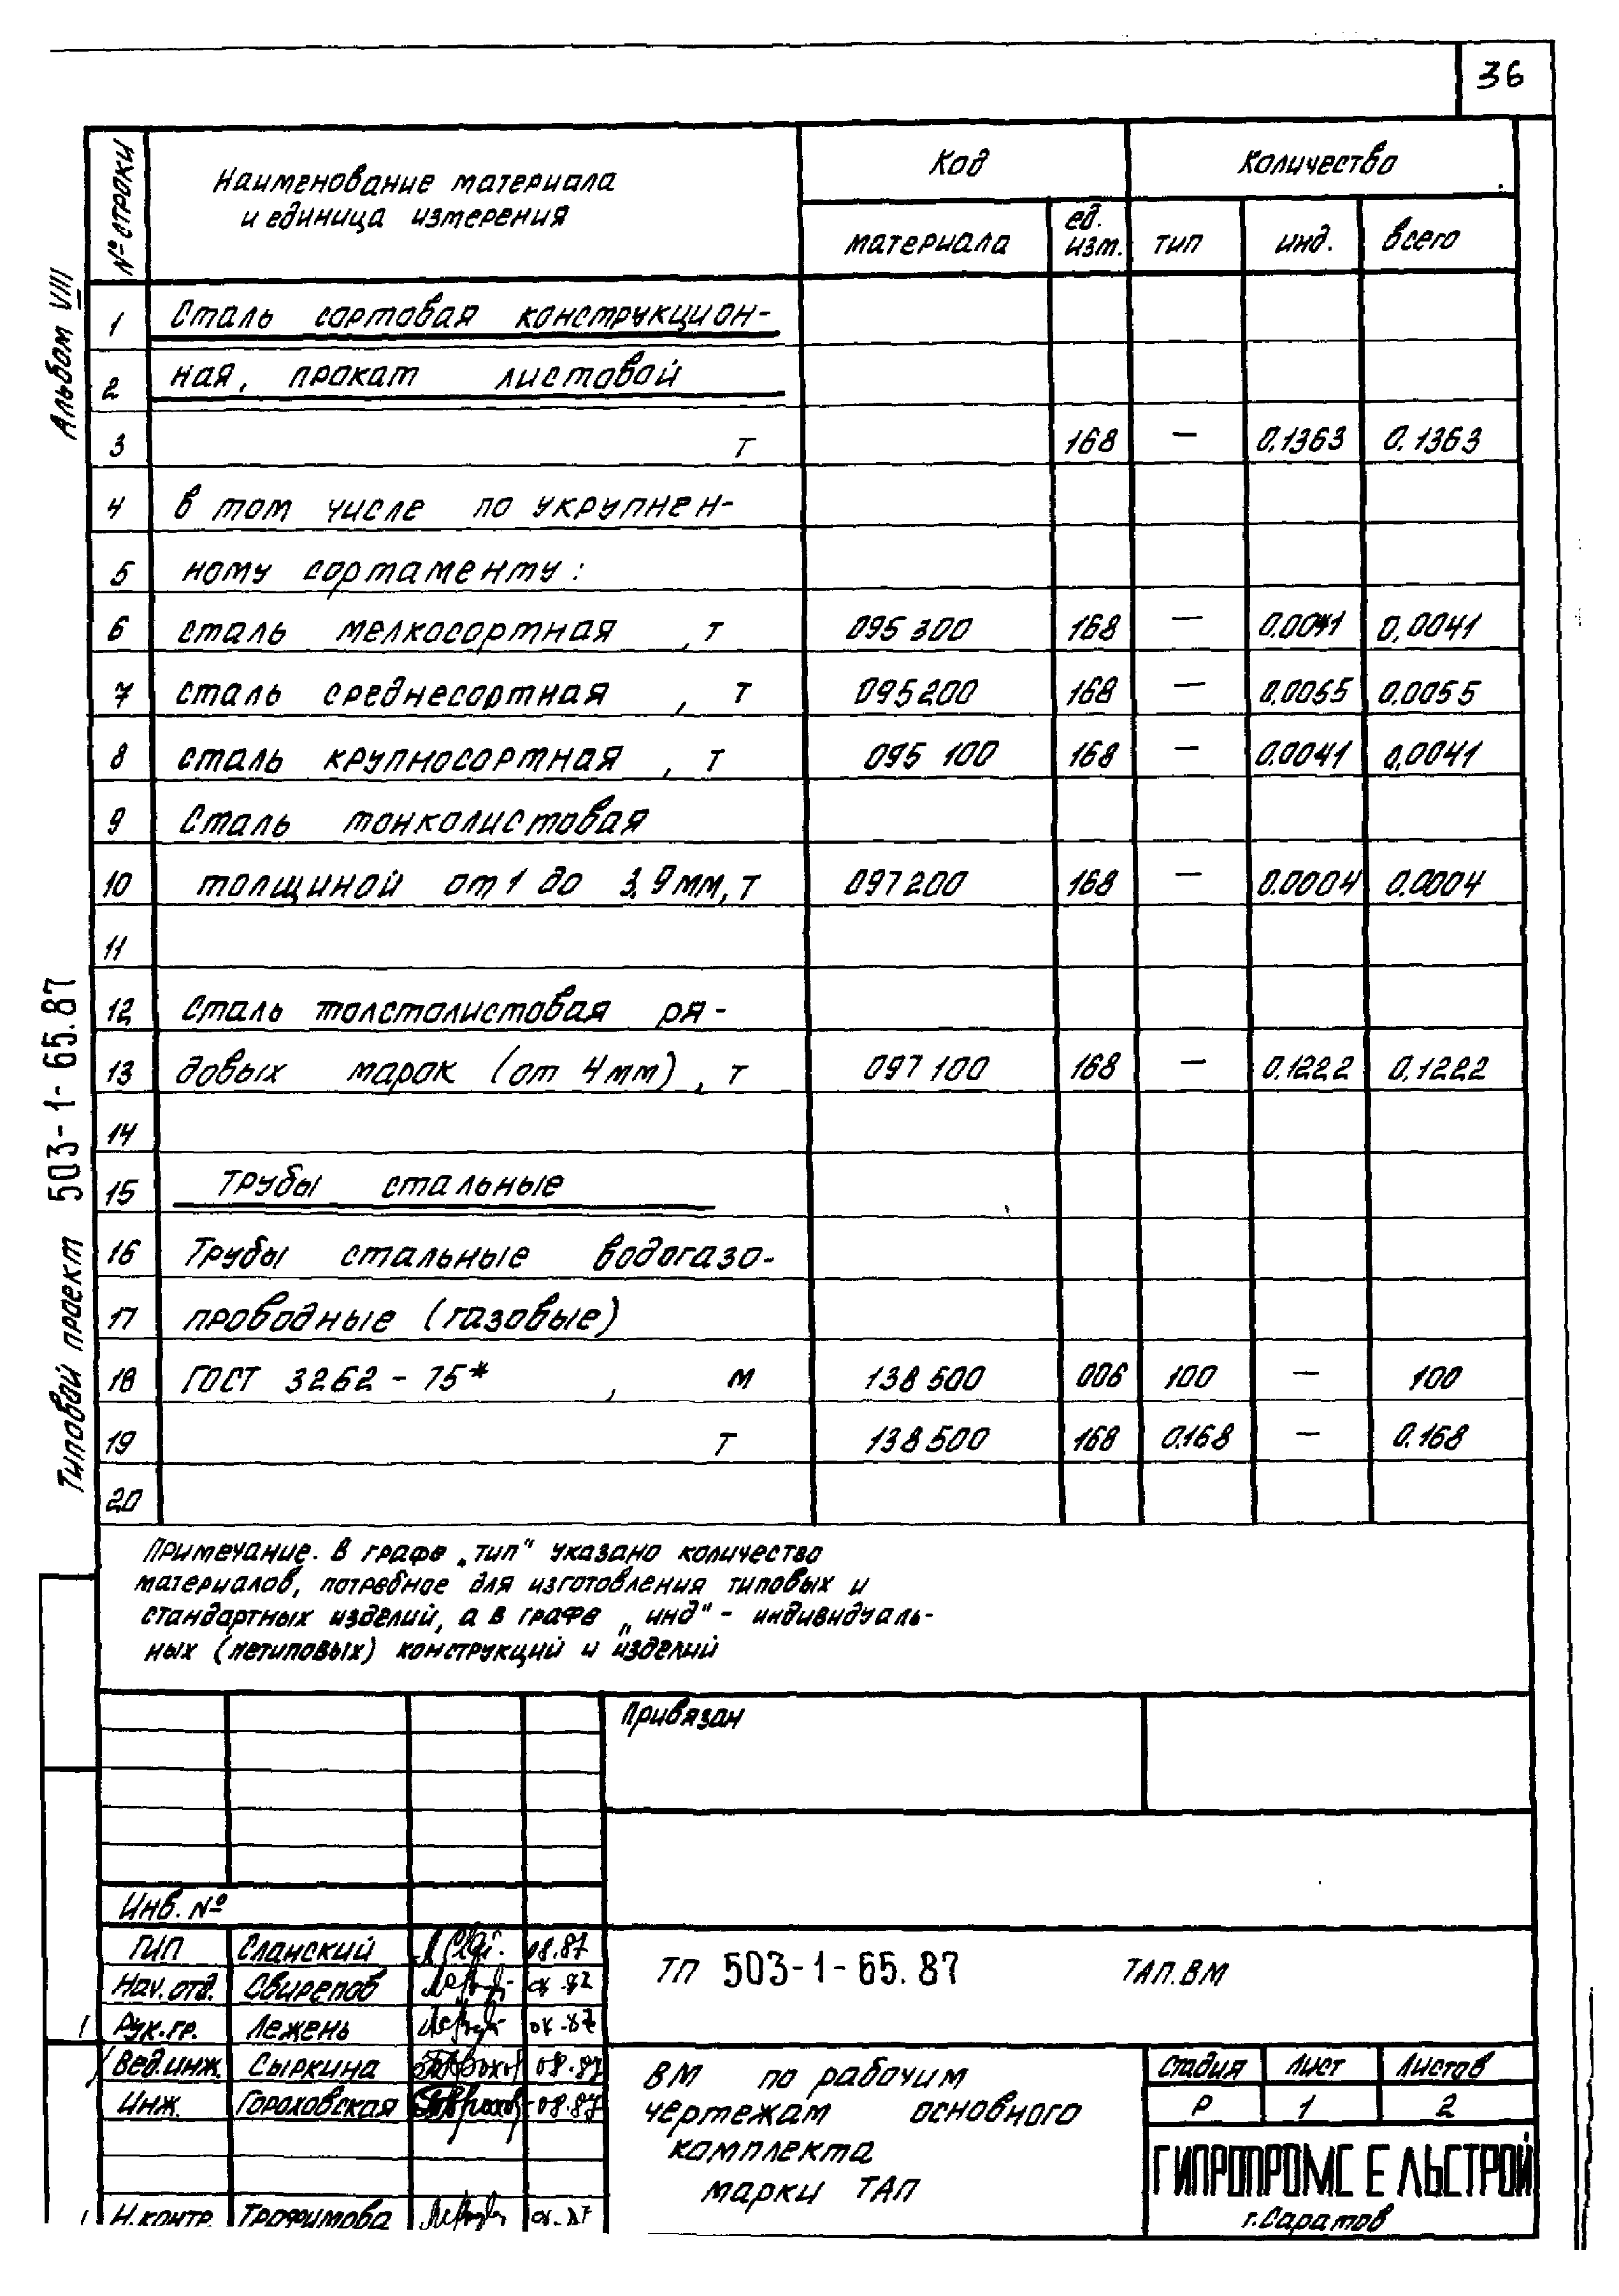 36
Альбом VIII
Типовой проект 503-1-65.87
№ строки
Наименование материала
и единица измерения
Код
Количество
материала
ед.
изм.
тип
инд.
всего
1 Сталь сортовая конструкцион-
2 ная, прокат листовой
3 т 168 — 0,1363 0,1363
4 в том числе по укрупнен-
5 ному сортаменту:
6 сталь мелкосортная , т 095300 168 — 0.0041 0,0041
7 сталь среднесортная , т 095200 168 — 0,0055 0.0055
8 сталь крупносортная , т 095 100 168 — 0.0041 0,0041
9 Сталь тонколистовая
10 толщиной от 1 до 3,9 мм, т 097200 168 — 0.0004 0.0004
11
12 Сталь толстолистовая ря-
13 довых марок (от 4 мм), т 097 100 168 — 0.1222 0.1222
14
15 Трубы стальные
16 Трубы стальные водогазо-
17 проводные (газовые)
18 ГОСТ 3262 - 75* , м 138 500 006 100 — 100
19 т 138500 168 0.168 — 0.168
20
Примечание. В графе „тип" указано количество
материалов, потребное для изготовления типовых и
стандартных изделий, а в графе „инд" - индивидуаль-
ных (нетиповых) конструкций и изделий
Привязан
Инв. №
ГИП Сланский 08.87
Нач. отд. Свирепов 08.87
Рук. гр. Лежень 08-87
Вед. инж. Сыркина 08.87
Инж. Гороховская 08.87
Н. контр. Трофимова 08.87
ТП 503-1-65.87 ТАП. ВМ
ВМ по рабочим
чертежам основного
комплекта
марки ТАП
Стадия Лист Листов
Р 1 2
ГИПРОПРОМСЕЛЬСТРОЙ
г. Саратов